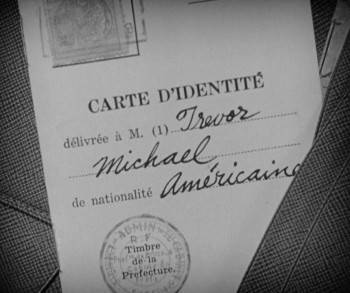 CARTE D'IDENTITÉ
délivrée à M. (1) Trevor
Michael
de nationalité Américaine
R F
Timbre
de la
Prefecture.